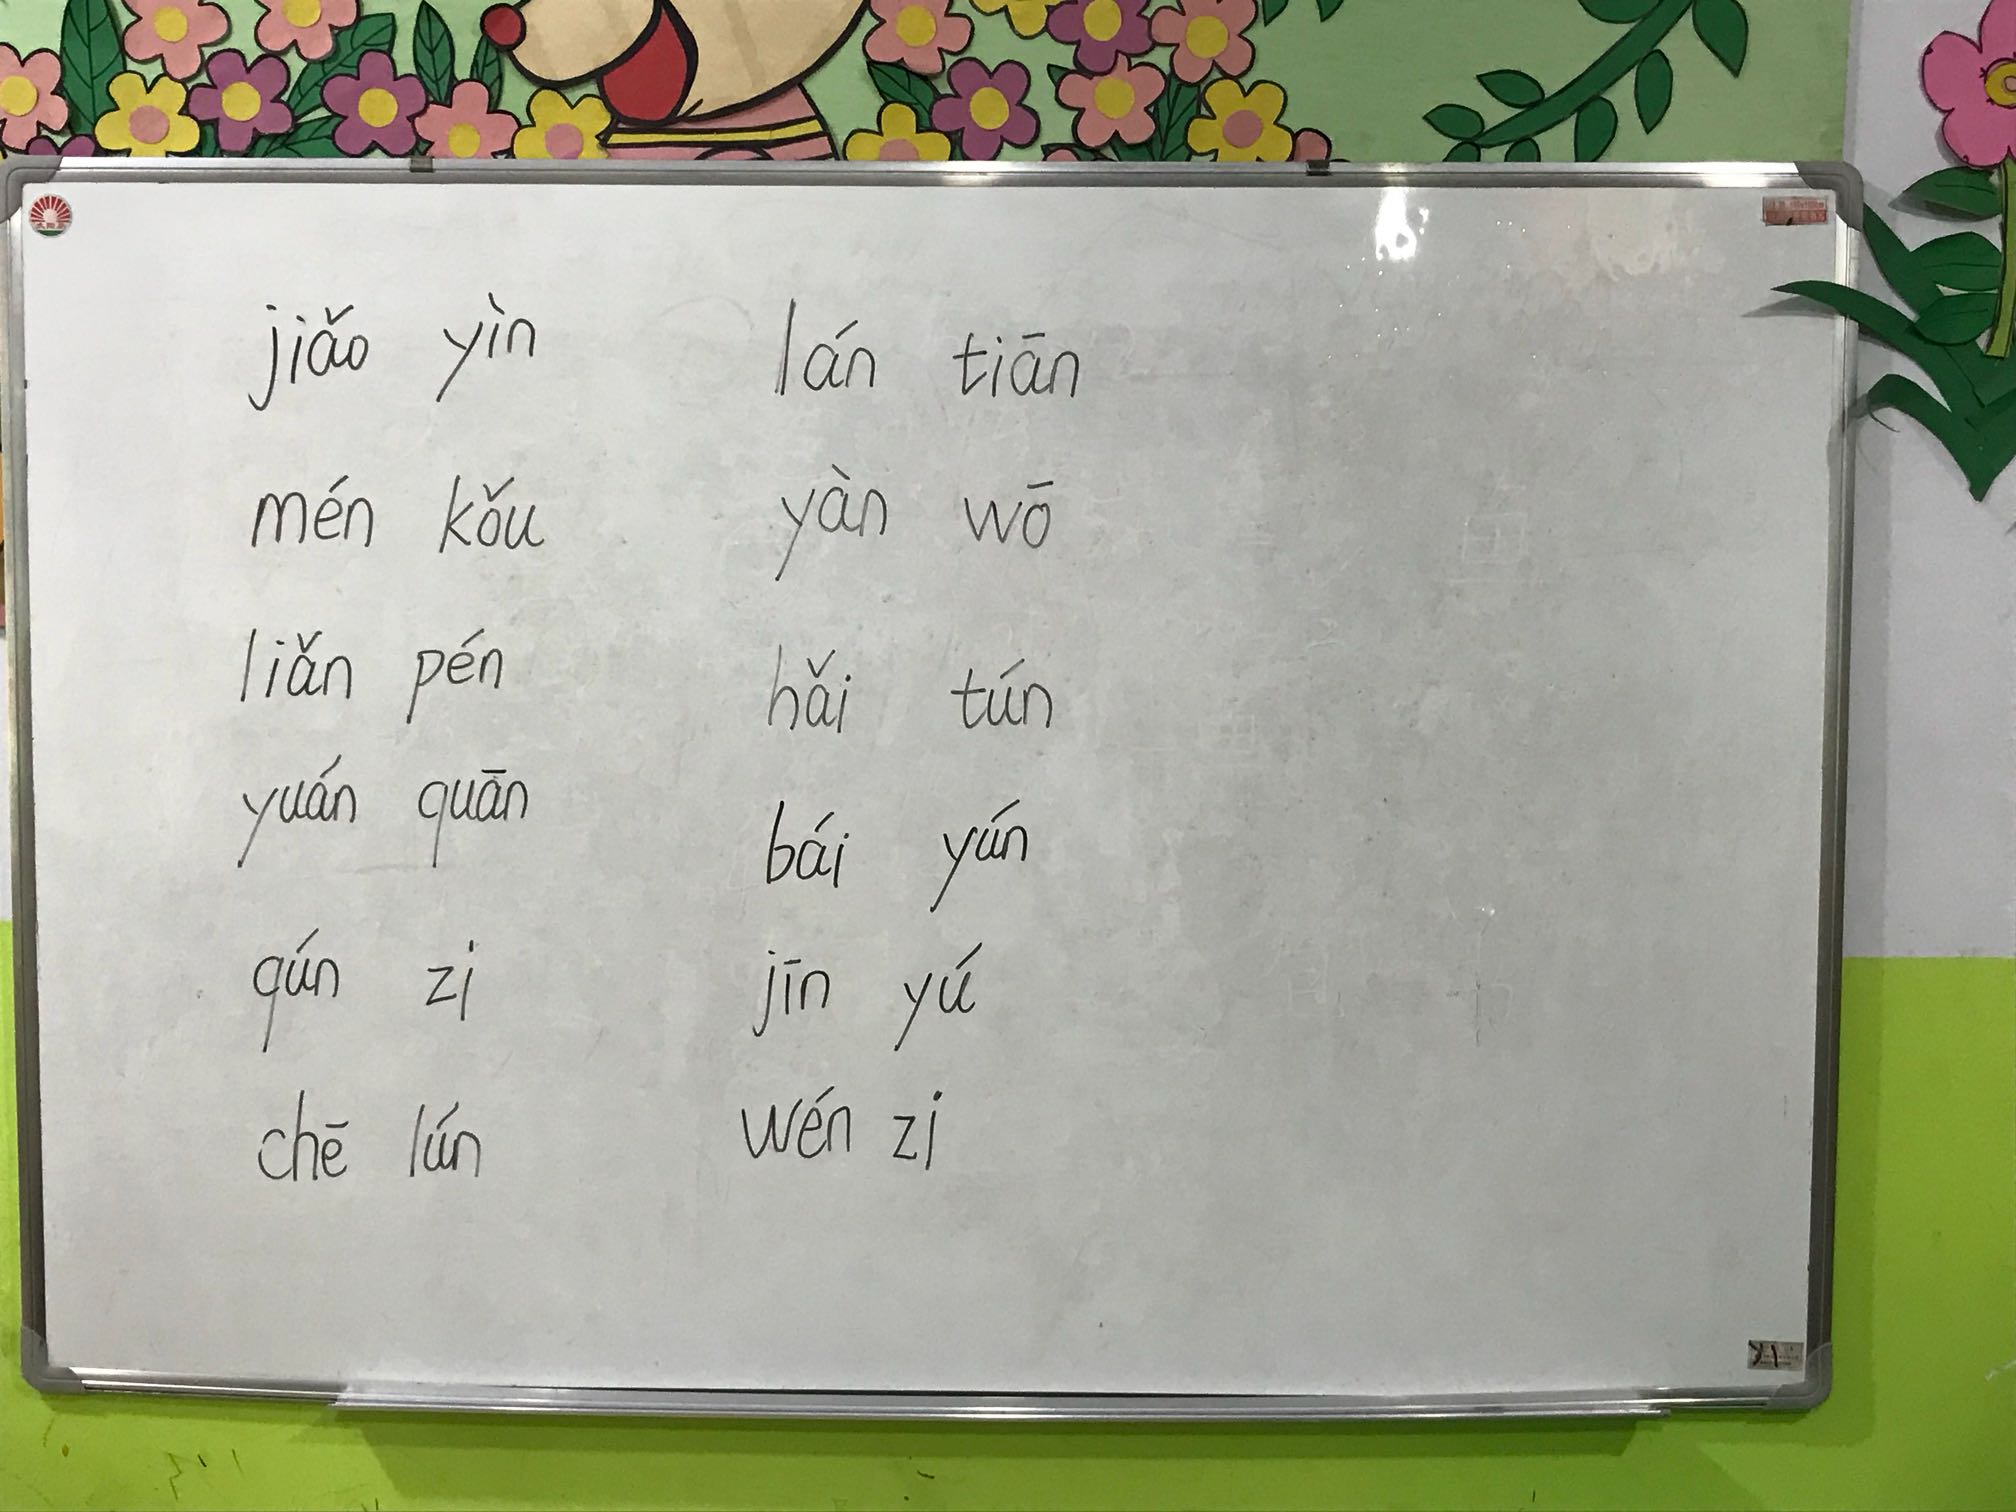 jiǎo yìn
mén kǒu
liǎn pén
yuán quān
qún zi
chē lún
lán tiān
yàn wō
hǎi tún
bái yún
jīn yú
wén zi